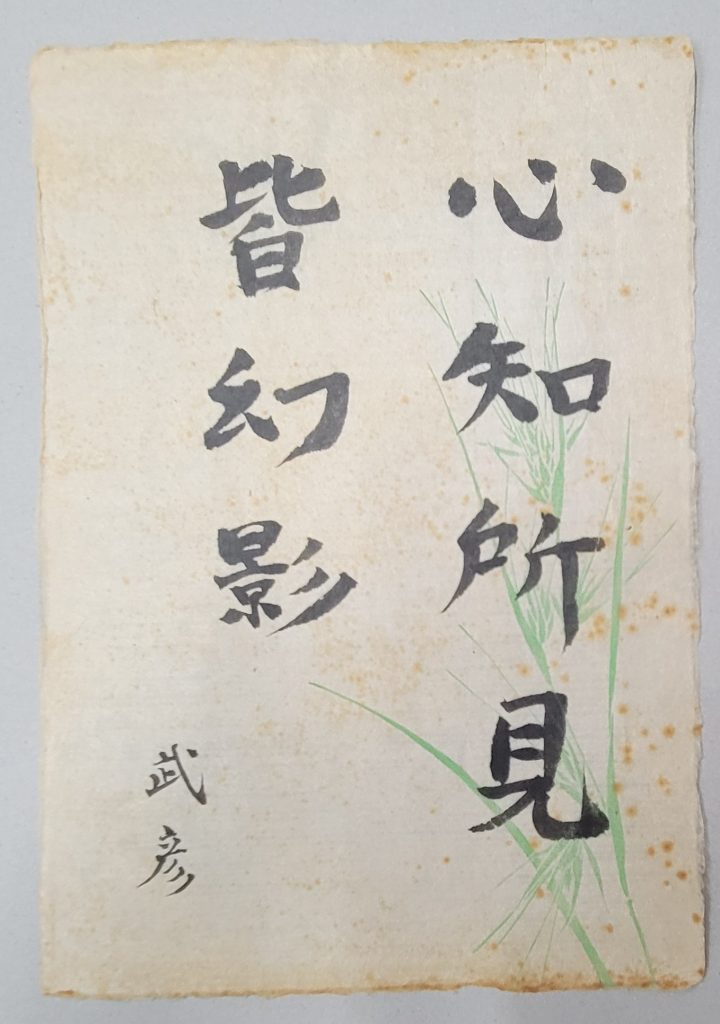 心知所見
皆幻影
武彦